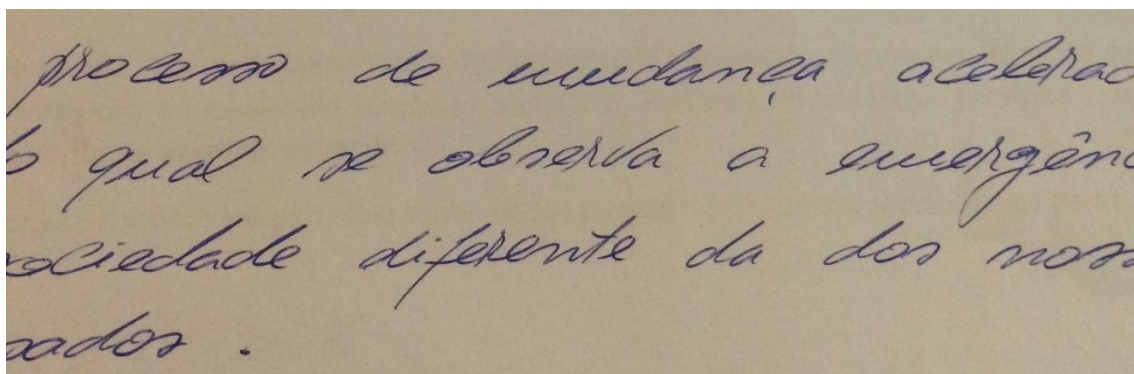 processo de mudança acelerad
o qual se observa a emergênc
sociedade diferente da dos noss
sados.